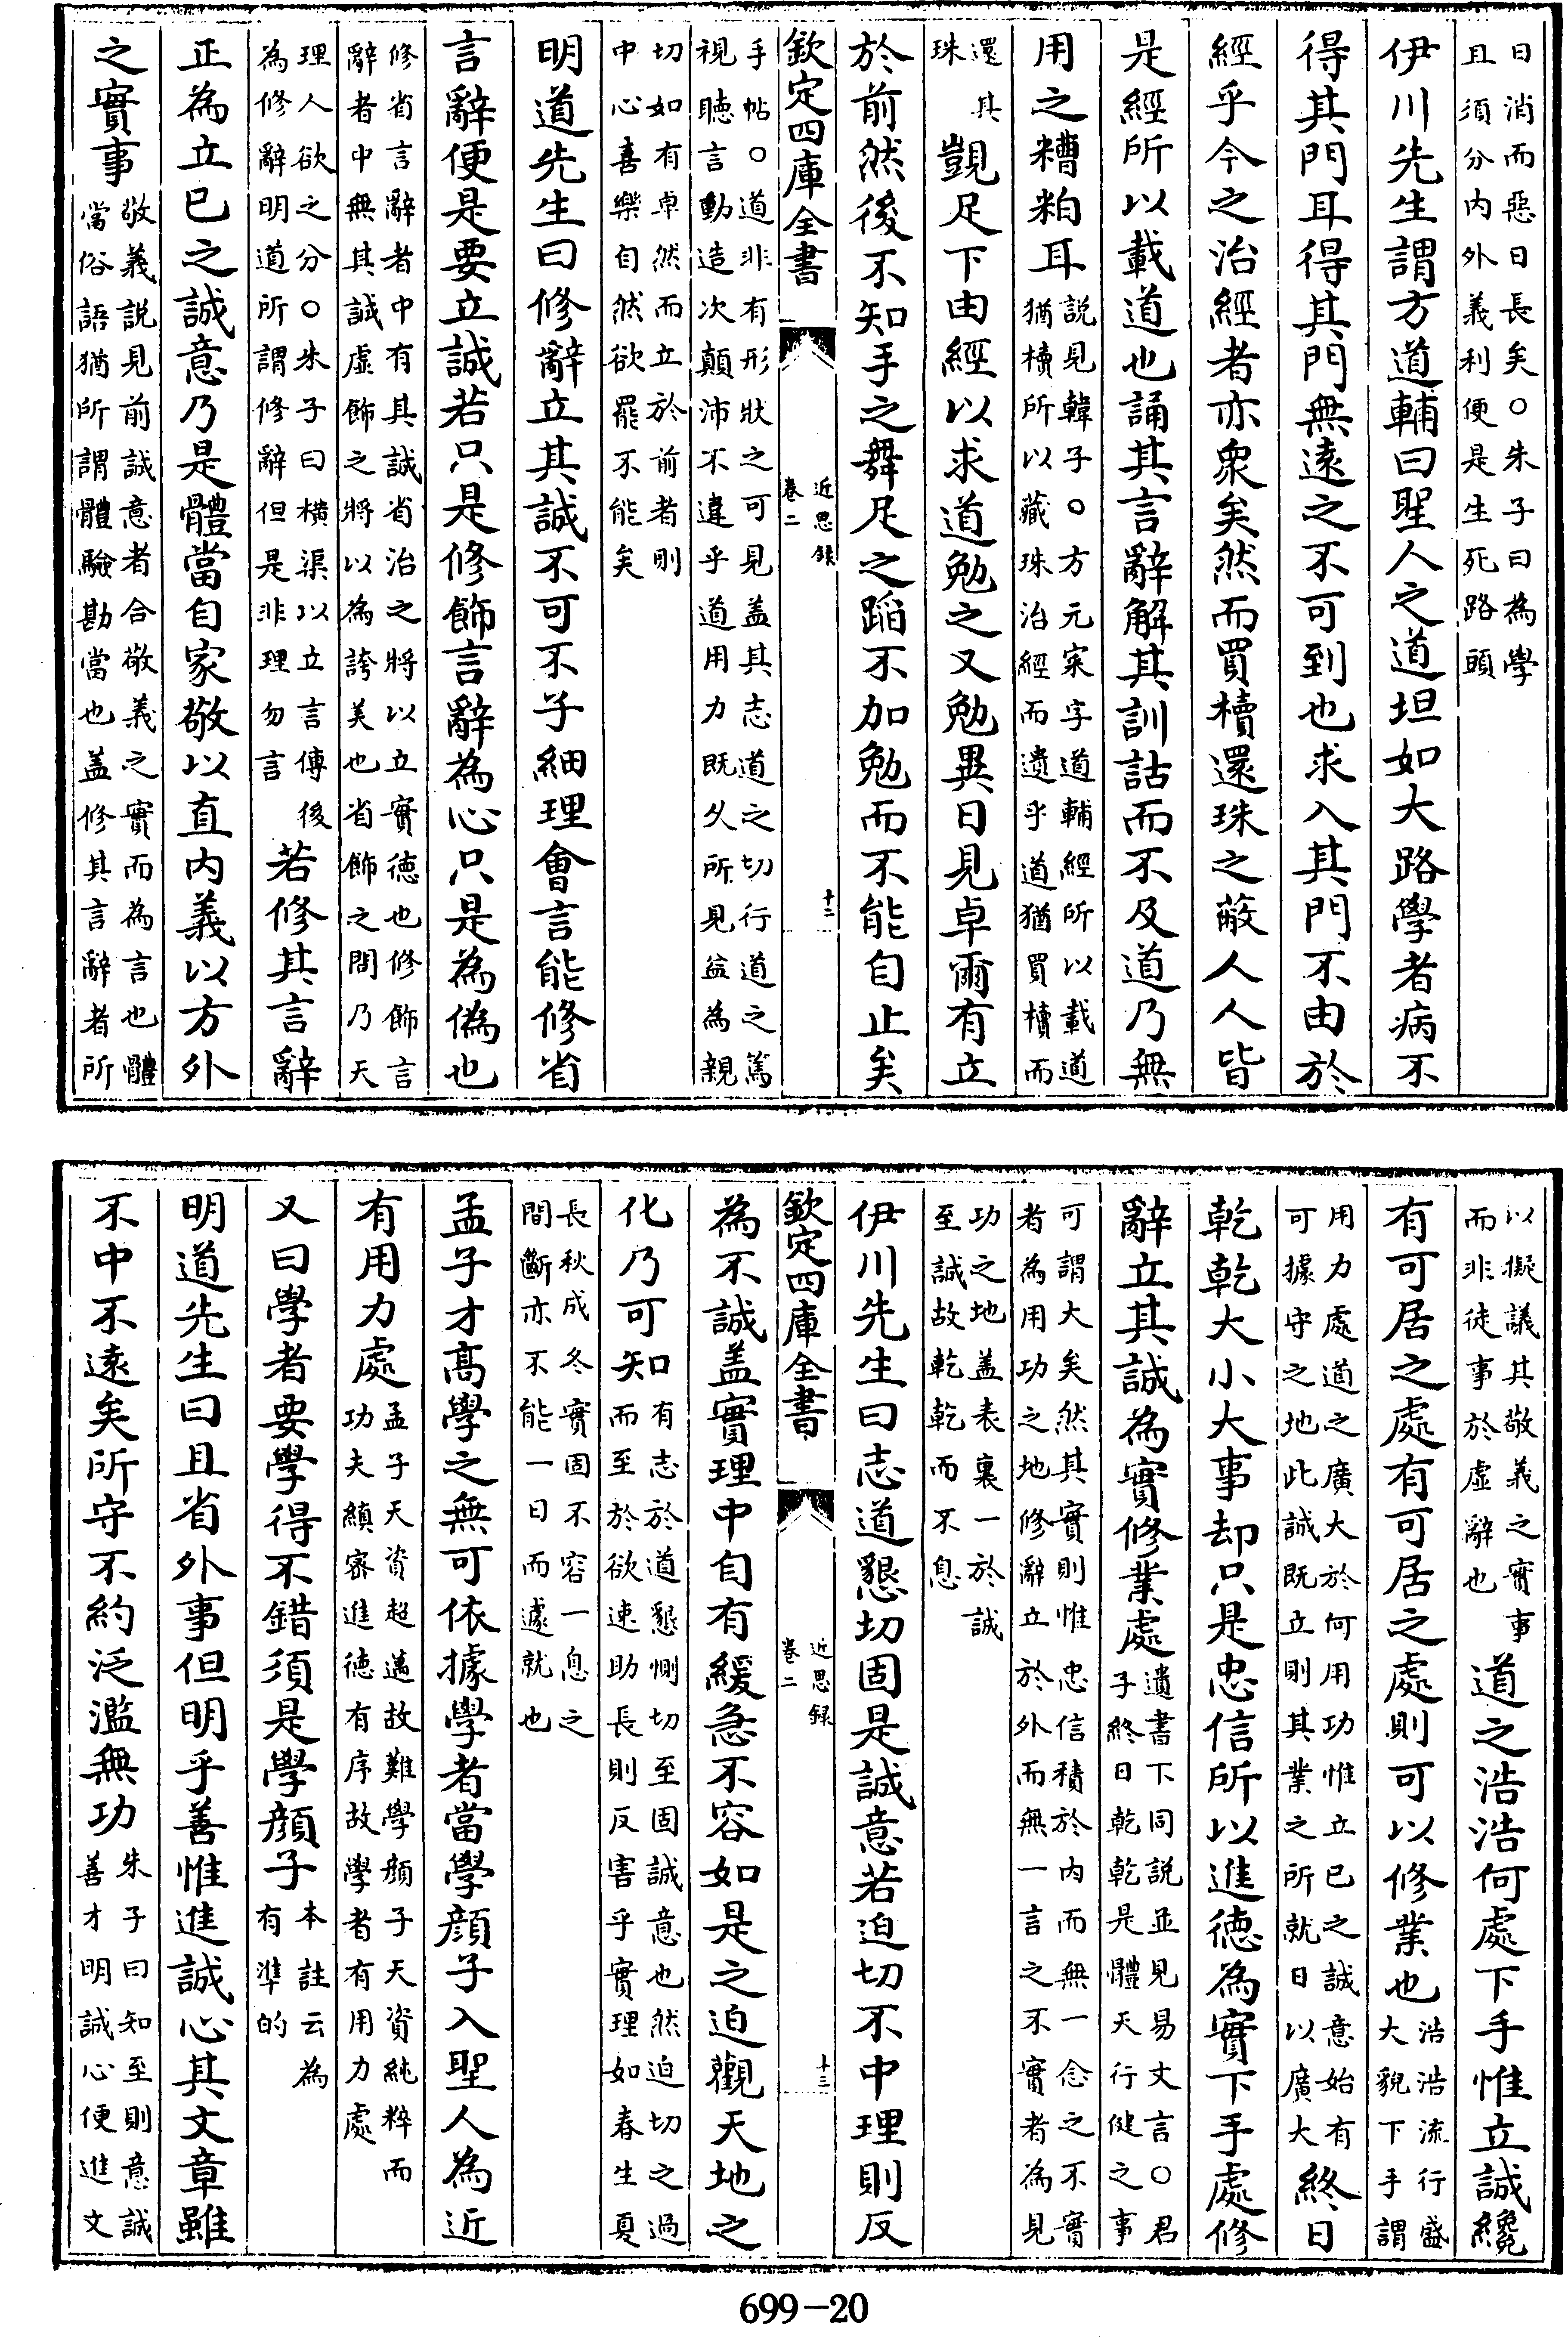 日消而惡日長矣○朱子曰為學
且須分内外義利便是生死路頭
伊川先生謂方道輔曰聖人之道坦如大路學者病不
得其門耳得其門無遠之不可到也求入其門不由於
經乎今之治經者亦衆矣然而買櫝還珠之蔽人人皆
是經所以載道也誦其言辭解其訓詁而不及道乃無
用之糟粕耳説見韓子○方元寀字道輔經所以載道
猶櫝所以藏珠治經而遺乎道猶買櫝而
還其
珠覬足下由經以求道勉之又勉異日見卓爾有立
於前然後不知手之舞足之蹈不加勉而不能自止矣
欽定四庫全書
近思録
卷二
十二
手帖○道非有形狀之可見盖其志道之切行道之篤
視聽言動造次顛沛不違乎道用力既久所見益為親
切如有卓然而立於前者則
中心喜樂自然欲罷不能矣
明道先生曰修辭立其誠不可不子細理會言能修省
言辭便是要立誠若只是修飾言辭為心只是為偽也
修省言辭者中有其誠省治之將以立實徳也修飾言
辭者中無其誠虛飾之將以為誇美也省飾之間乃天
理人欲之分○朱子曰横渠以立言傳後
為修辭明道所謂修辭但是非理勿言若修其言辭
正為立已之誠意乃是體當自家敬以直内義以方外
之實事敬義説見前誠意者合敬義之實而為言也體
當俗語猶所謂體驗勘當也盖修其言辭者所
以擬議其敬義之實事
而非徒事於虛辭也道之浩浩何處下手惟立誠纔
有可居之處有可居之處則可以修業也浩浩流行盛
大貌下手謂
用力處道之廣大於何用功惟立已之誠意始有
可據守之地此誠既立則其業之所就日以廣大終日
乾乾大小大事却只是忠信所以進徳為實下手處修
辭立其誠為實修業處遺書下同説並見易文言○君
子終日乾乾是體天行健之事
可謂大矣然其實則惟忠信積於内而無一念之不實
者為用功之地修辭立於外而無一言之不實者為見
功之地盖表裏一於誠
至誠故乾乾而不息
伊川先生曰志道懇切固是誠意若迫切不中理則反
欽定四庫全書
近思録
卷二
十三
為不誠盖實理中自有緩急不容如是之迫觀天地之
化乃可知有志於道懇惻切至固誠意也然迫切之過
而至於欲速助長則反害乎實理如春生夏
長秋成冬實固不容一息之
間斷亦不能一日而遽就也
孟子才高學之無可依據學者當學顔子入聖人為近
有用力處孟子天資超邁故難學顔子天資純粹而
功夫縝密進徳有序故學者有用力處
又曰學者要學得不錯須是學顔子本註云為
有準的
明道先生曰且省外事但明乎善惟進誠心其文章雖
不中不遠矣所守不約泛濫無功朱子曰知至則意誠
善才明誠心便進文
699-20